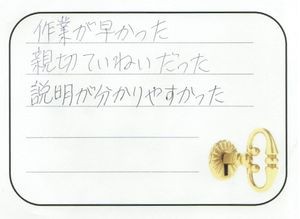 作業が早かった
親切ていねいだった
説明が分かりやすかった